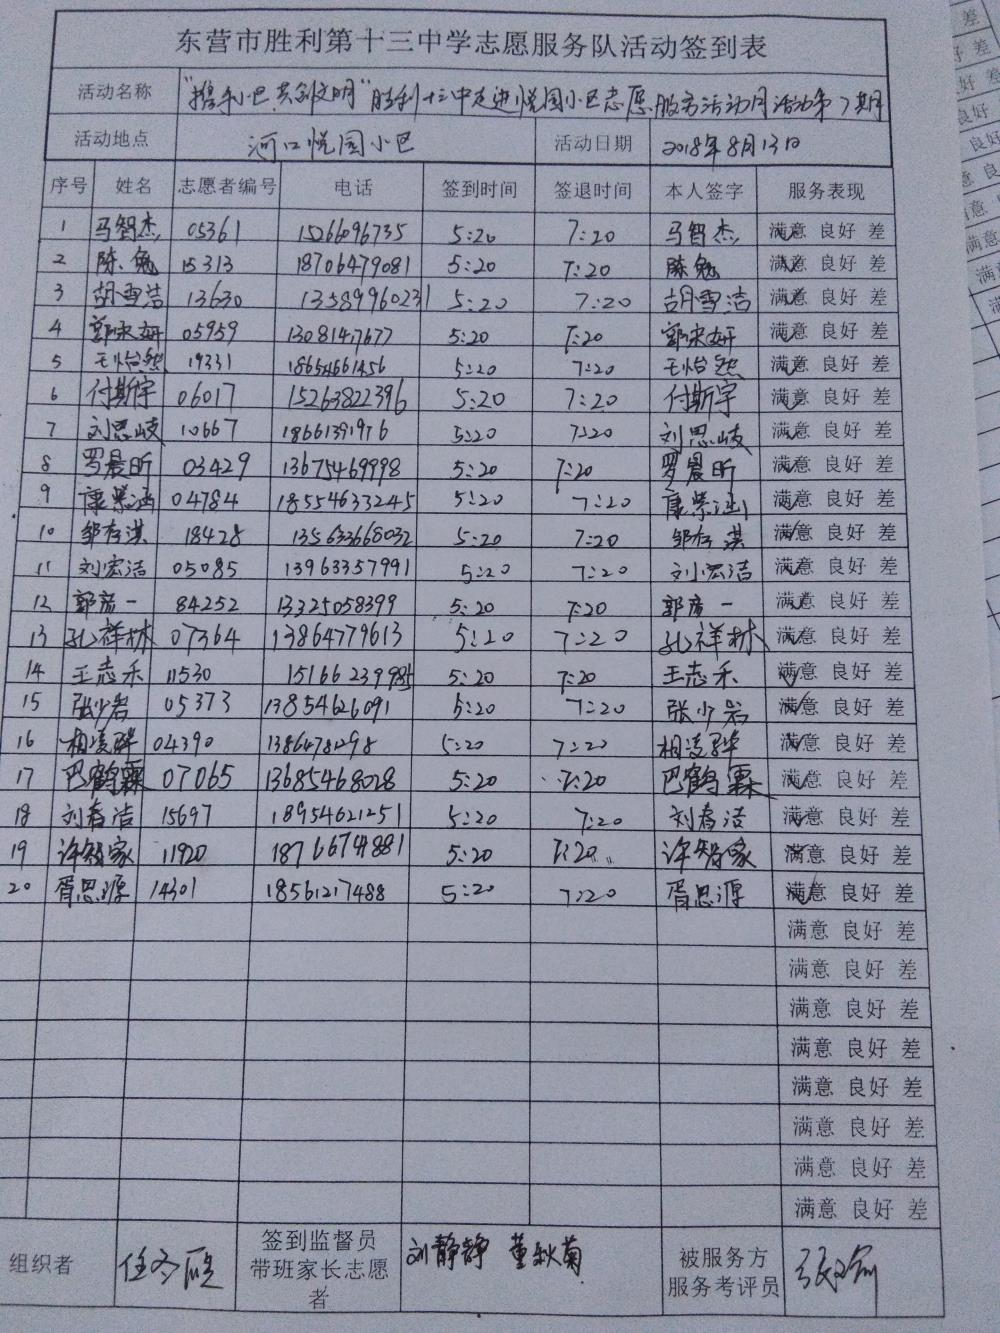 东营市胜利第十三中学志愿服务队活动签到表
活动名称 "携手小巴 共创文明"胜利十三中走进悦园小巴志愿服务活动月活动第7期
活动地点 河口悦园小巴 活动日期 2018年8月13日
序号 姓名 志愿者编号 电话 签到时间 签退时间 本人签字 服务表现
1 马智杰 05361 15266096735 5:20 7:20 马智杰 满意 良好 差
2 陈勉 15313 18706479081 5:20 7:20 陈勉 满意 良好 差
3 胡雪洁 13630 13589960231 5:20 7:20 胡雪洁 满意 良好 差
4 郭咏妍 05959 13081417677 5:20 7:20 郭咏妍 满意 良好 差
5 王怡然 19331 18654661456 5:20 7:20 王怡然 满意 良好 差
6 付斯宇 06017 15263822396 5:20 7:20 付斯宇 满意 良好 差
7 刘思岐 10667 18661391976 5:20 7:20 刘思岐 满意 良好 差
8 罗晨昕 03429 13675469998 5:20 7:20 罗晨昕 满意 良好 差
9 康紫涵 04784 18554633245 5:20 7:20 康紫涵 满意 良好 差
10 邹存淇 18428 135633668032 5:20 7:20 邹存淇 满意 良好 差
11 刘宏洁 05085 13963357991 5:20 7:20 刘宏洁 满意 良好 差
12 郭彦一 84252 13325058399 5:20 7:20 郭彦一 满意 良好 差
13 孔祥林 07364 13864779613 5:20 7:20 孔祥林 满意 良好 差
14 王志禾 11530 15166239985 5:20 7:20 王志禾 满意 良好 差
15 张少岩 05373 13854626091 5:20 7:20 张少岩 满意 良好 差
16 相凌骅 04390 1386478298 5:20 7:20 相凌骅 满意 良好 差
17 巴鹤霖 07065 13685468028 5:20 7:20 巴鹤霖 满意 良好 差
18 刘春洁 15697 18954621251 5:20 7:20 刘春洁 满意 良好 差
19 许智家 11920 18766741881 5:20 7:20 许智家 满意 良好 差
20 胥思源 14301 18561217488 5:20 7:20 胥思源 满意 良好 差
满意 良好 差
满意 良好 差
满意 良好 差
满意 良好 差
满意 良好 差
满意 良好 差
满意 良好 差
满意 良好 差
组织者 签到监督员 刘静静 董秋菊 被服务方
带班家长志愿 服务考评员
者